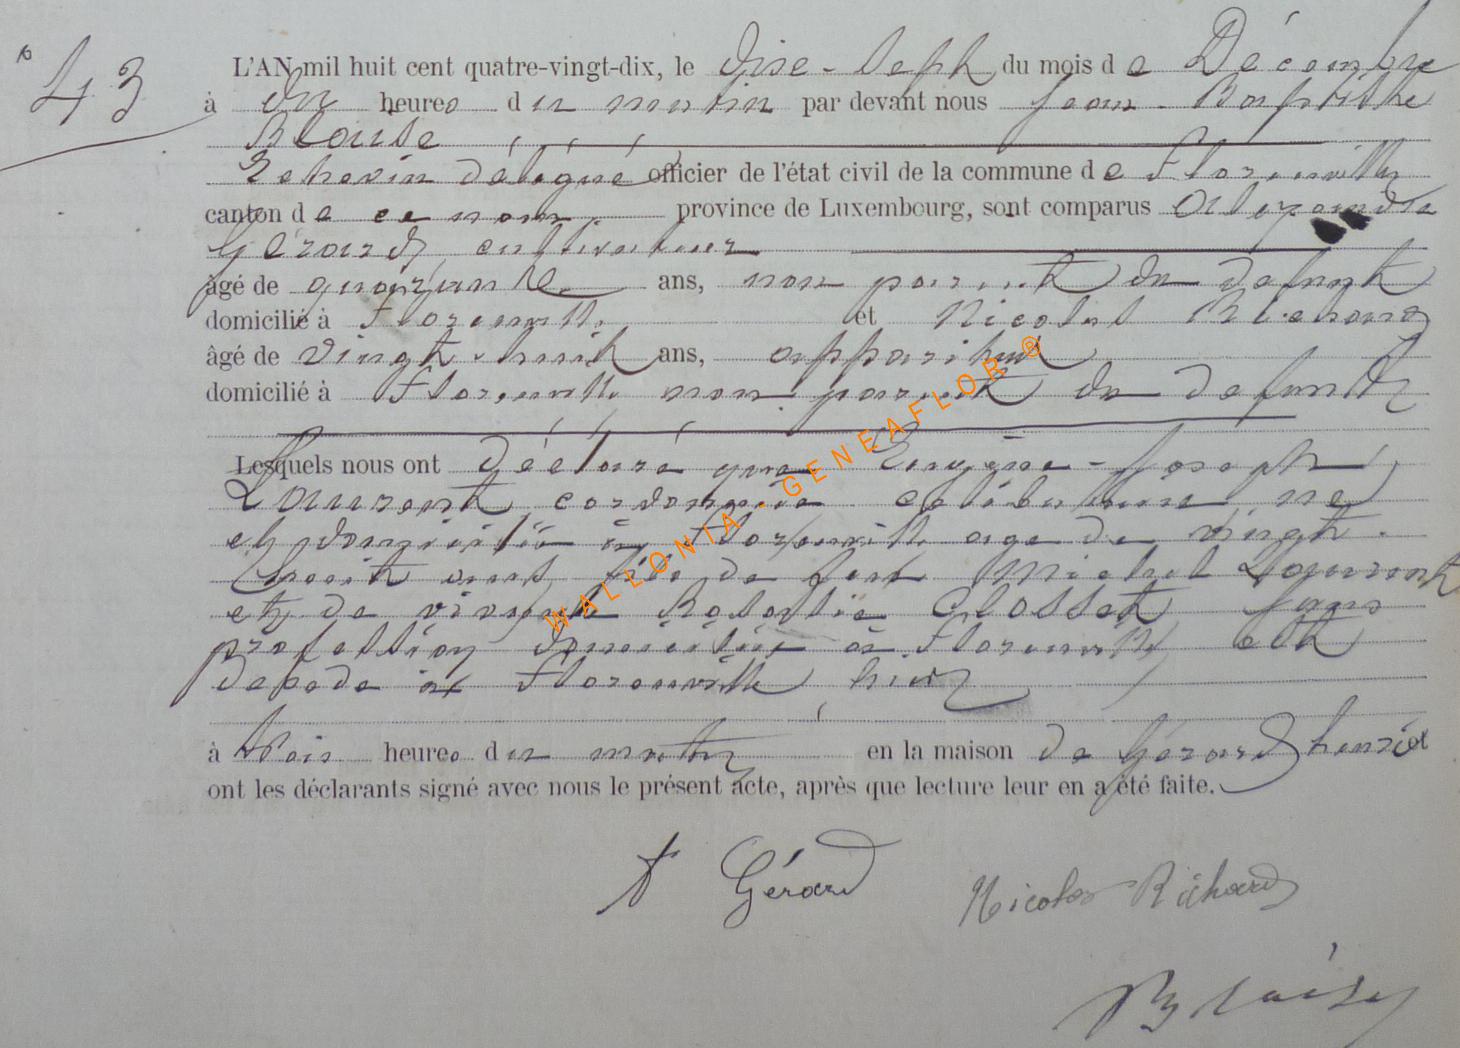 n° 43
L'AN mil huit cent quatre-vingt-dix, le dise-sept du mois de Décembre
à dix heures du matin par devant nous Jean-Baptiste
Blaise
Echevin délégué officier de l'état civil de la commune de Florenville
canton de ce nom. province de Luxembourg, sont comparus Alexandre
Gérard, cultivateur
âgé de quarante ans, non parent du defunt
domicilié à Florenville et Nicolas Richard
âgé de vingt-huit ans, appariteur
domicilié à Florenville non parent du defunt
Lesquels nous ont déclaré que Eugène-Joseph
Laurent, cordonnier celibataire né
et domicilié à Florenville age de vingt-
huit ans, fils de feu Michel Laurent
et de vivante Rosalie Closset, sans
profession domiciliée à Florenville, est
decede à Florenville hier
à trois heures du matin en la maison de Gérard henriot
ont les déclarants signé avec nous le présent acte, après que lecture leur en a été faite.
A Gérard
Nicolas Richard
Blaise
WALLONIA - GENEAFLOR ®